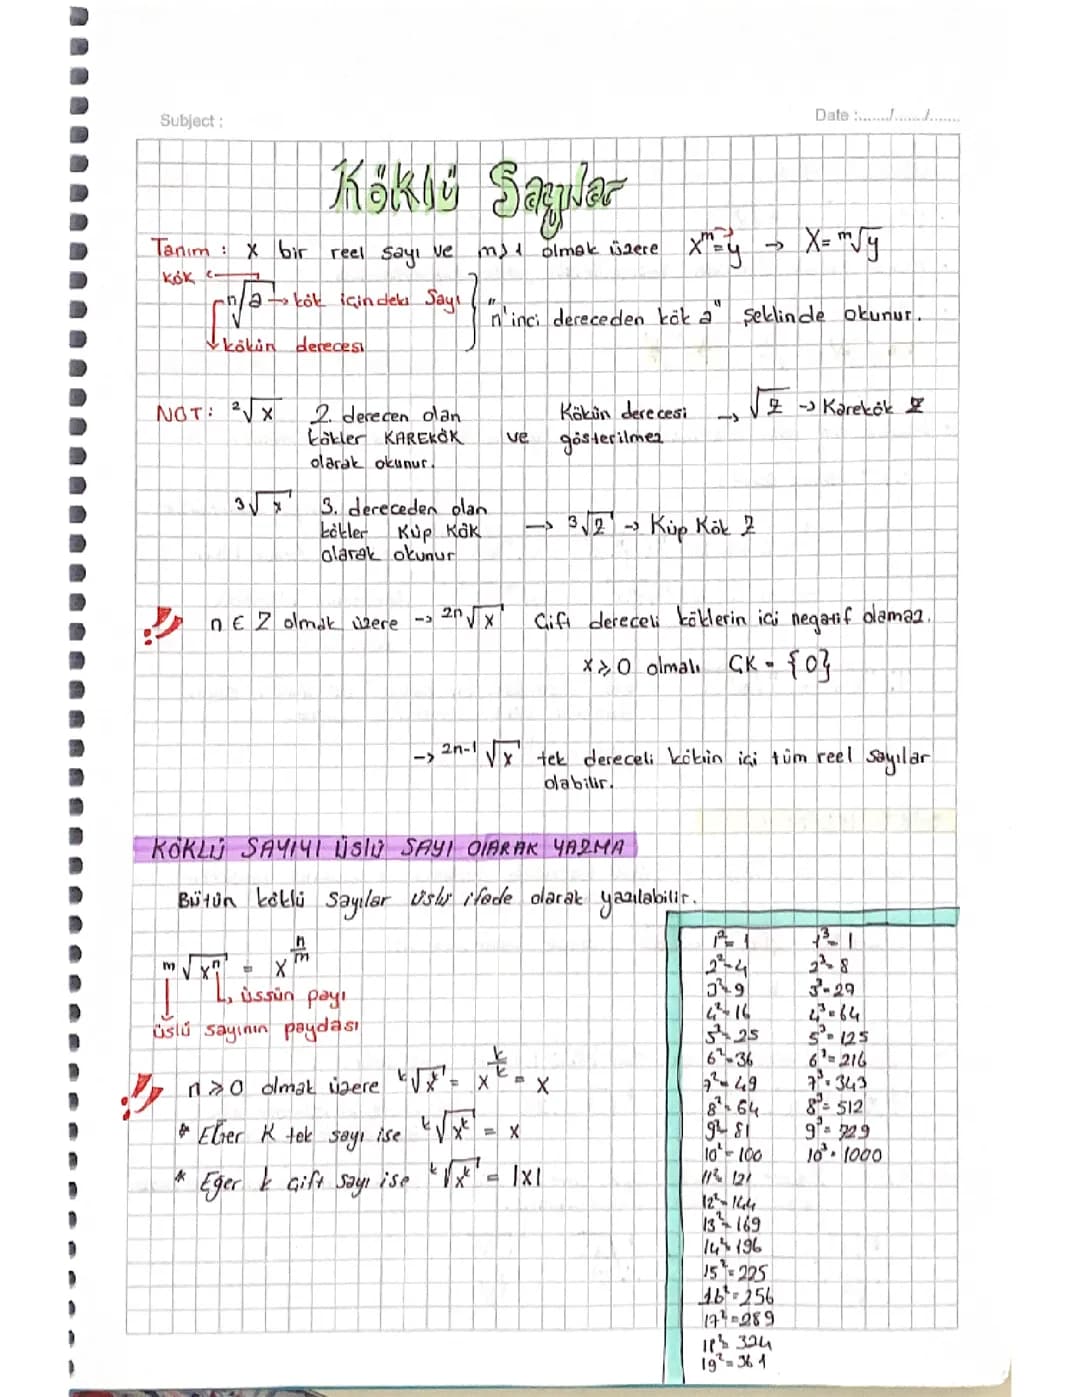 Subject :
Date :......./......./.......
Köklü Sayılar
Tanım : x bir reel sayı ve m>1 olmak üzere x^m=y → X= ᵐ√y
kök
ⁿ√a → kök içindeki Sayı
"n'inci dereceden kök a" şeklinde okunur.
kökün derecesi
NOT: ²√x 2. derecen olan kökler KAREKÖK olarak okunur. ve Kökün derecesi gösterilmez → √2 → Karekök 2
³√x 3. dereceden olan kökler Küp Kök olarak okunur → ³√2 → Küp Kök 2
!! n ∈ Z olmak üzere → ²ⁿ√x Çift dereceli köklerin içi negatif olamaz.
x ≥ 0 olmalı ÇK = {0}
→ ²ⁿ⁻¹√x tek dereceli kökün içi tüm reel sayılar
olabilir.
KÖKLÜ SAYIYI ÜSLÜ SAYI OLARAK YAZMA
Bütün köklü sayılar üslü ifade olarak yazılabilir.
ᵐ√xⁿ = x^(n/m)
üssün payı
üslü sayının paydası
!! n ≥ 0 olmak üzere ᵏ√xᵏ = x^(k/k) = x
* Eğer K tek sayı ise ᵏ√xᵏ = x
* Eğer k çift sayı ise ᵏ√xᵏ = |x|
1²= 1 1³= 1
2²=4 2³= 8
3²=9 3³=29
4²=16 4³=64
5²=25 5³=125
6²=36 6³=216
7²=49 7³=343
8²=64 8³=512
9²=81 9³=729
10²=100 10³=1000
11²=121
12²=144
13²=169
14²=196
15²=225
16²=256
17²=289
18²=324
19²=361